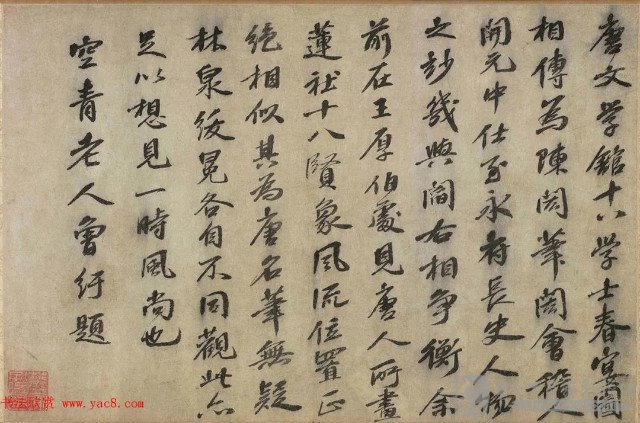 唐文学舘十八学士春宴圖
相傳為陳閎筆閎會稽人
開元中仕至永府長史人物
之妙幾與閻右相爭衡余
前在王厚伯處見唐人所畫
蓮社十八賢象風流位置正
絶相似其為唐名筆無疑
林泉綬冕各自不同觀此亦
足以想見一時風尚也
空青老人曾紆題
书法欣赏 www.yac8.com